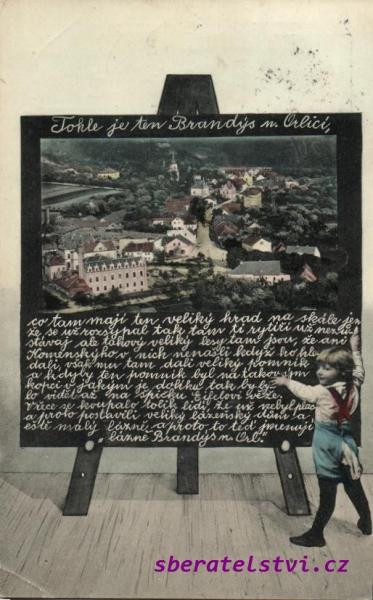 Tohle je ten Brandýs n. Orlicí,
co tam mají ten veliký hrad na skále jen
že se už rozsypal tak tam ti rytíři už nezů
stávaj ale takový veliký lesy tam jsou, že ani
Komenskýho v nich nenašli když ho hle
dali, však mu tam dali veliký pomník
a kdyby ten pomník byl na takovým
kopci v jakým je dolíku tak by by
lo vidět až na špičku Eifelovi věže.
V řece se koupalo tolik lidí že už nebyl plac
a proto postavili veliký lázenský dům a
eště malý lázně a proto to teď jmenují
„lázně Brandýs n. Orl."
sberatelstvi.cz